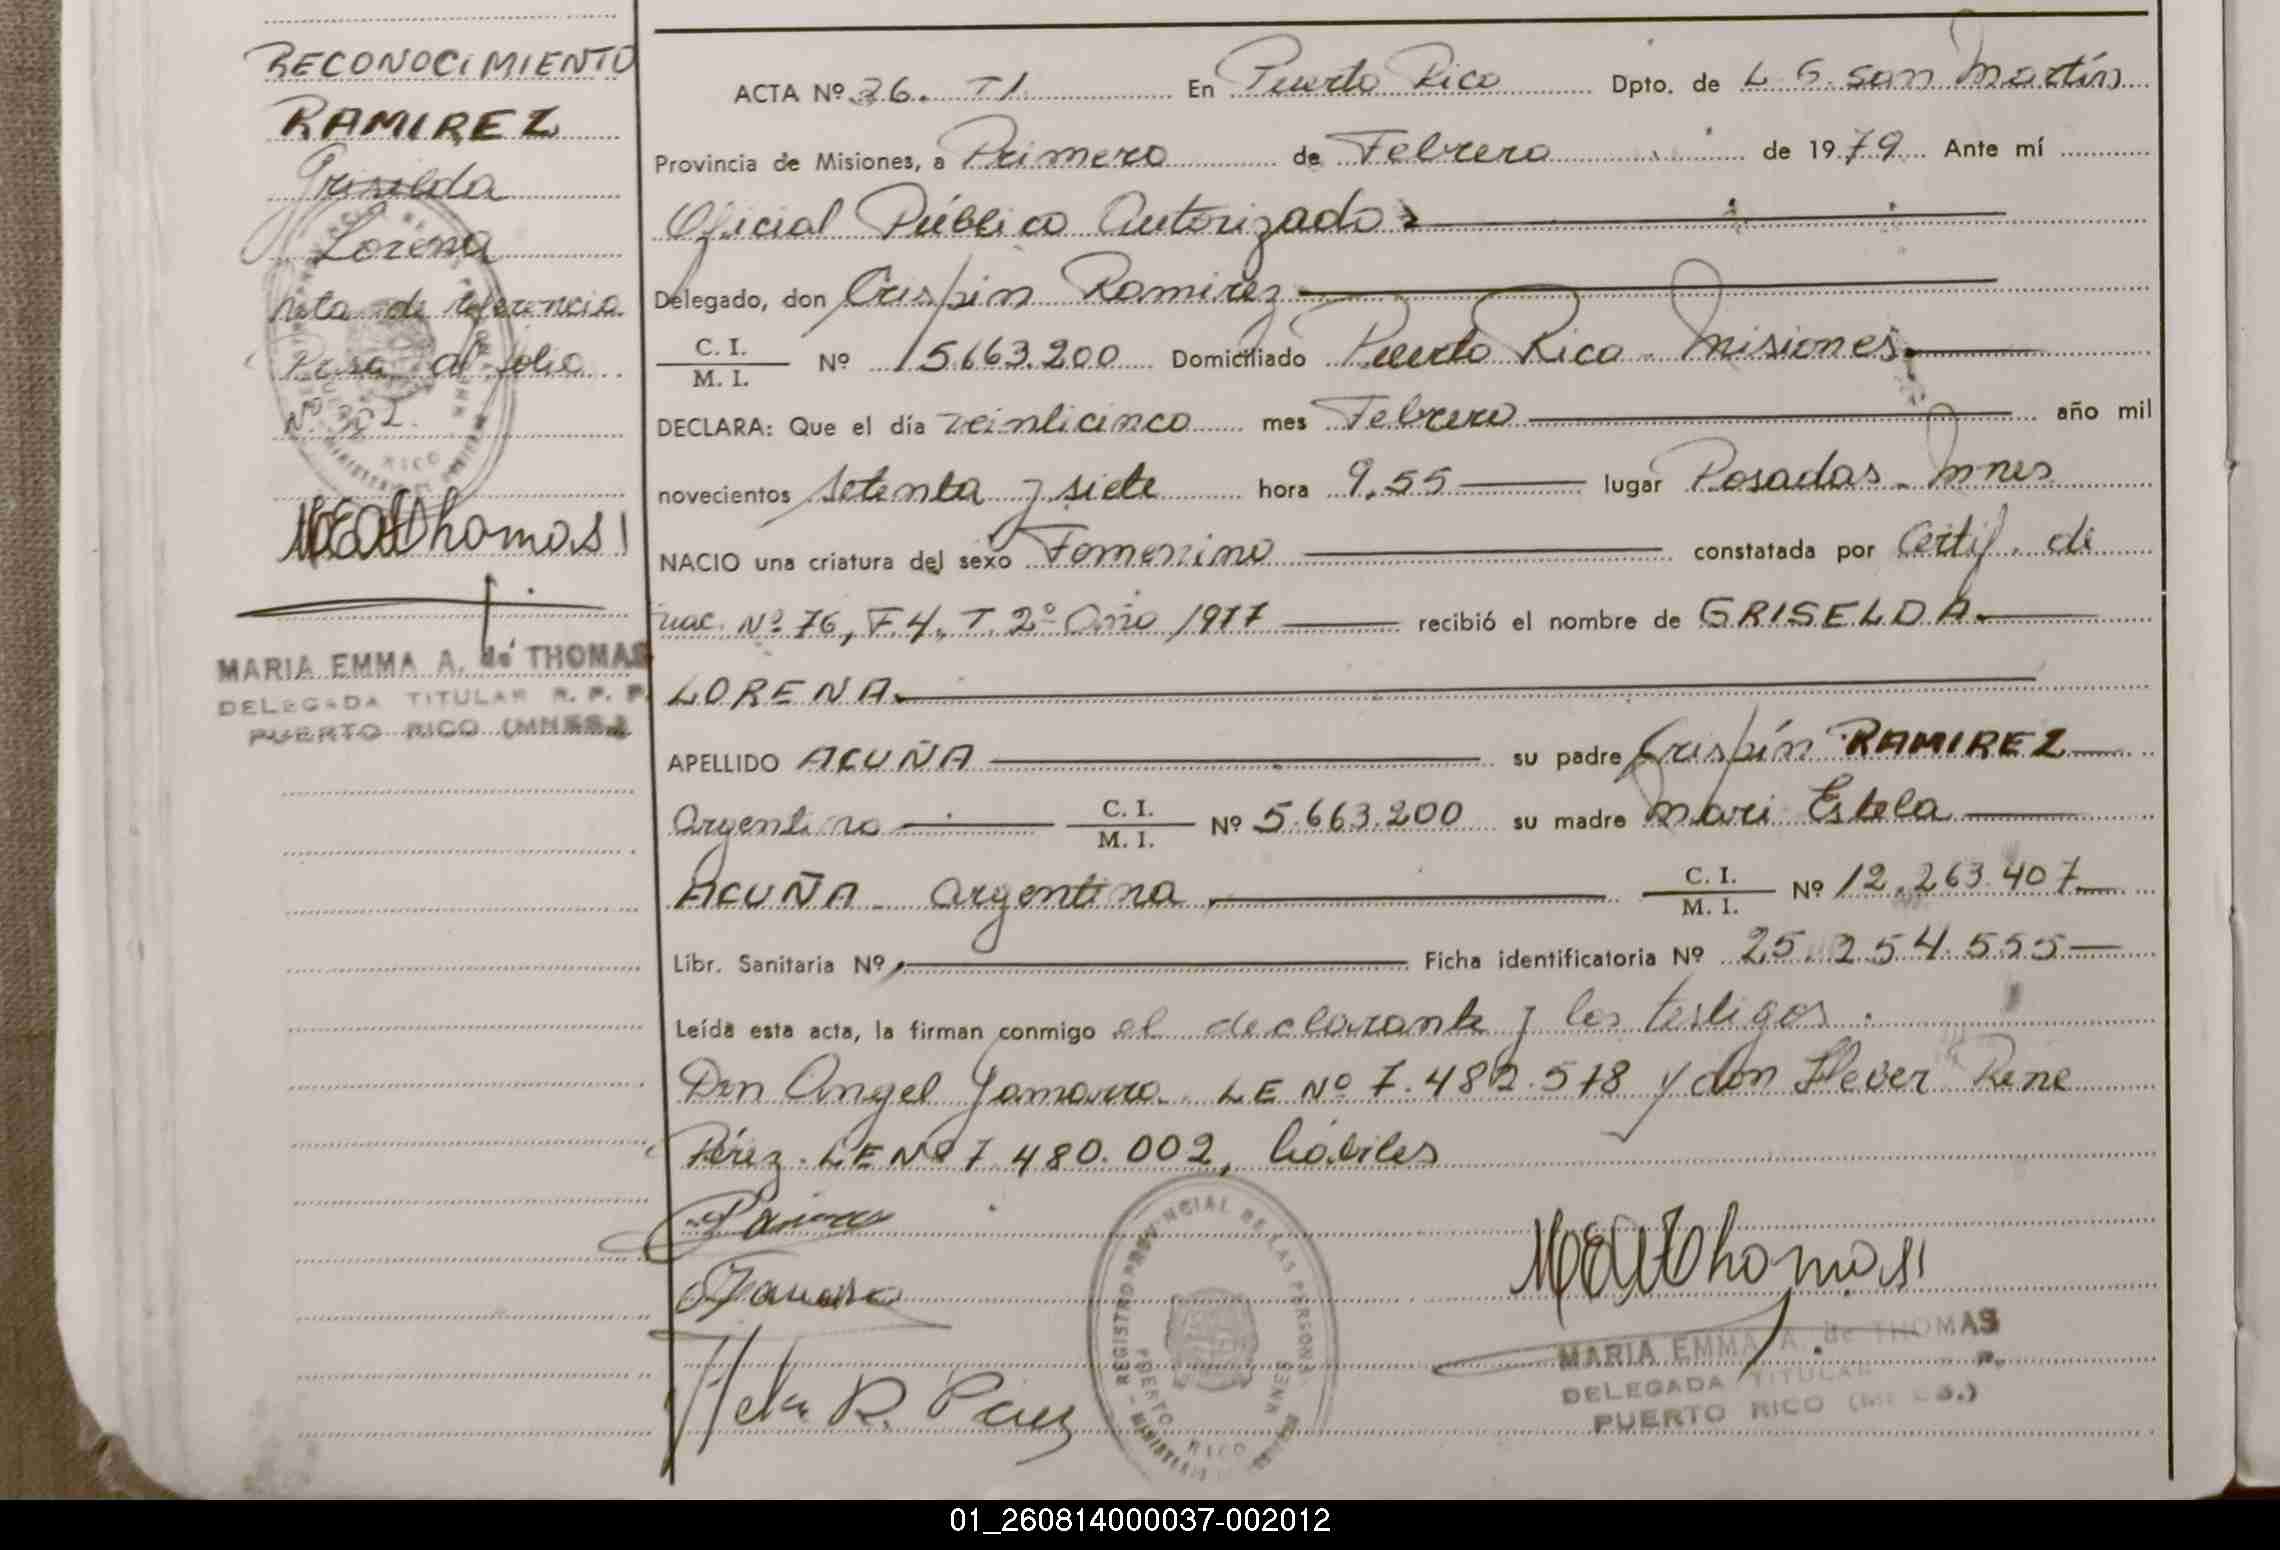 RECONOCIMIENTO
RAMIREZ
Griselda
Lorena
Nota de referencia
Pasa al folio
Nº 302.
MEAdThomas
MARIA EMMA A. de THOMAS
DELEGADA TITULAR R. P. P.
PUERTO RICO (MNES.)
ACTA Nº 36. T1. En Puerto Rico Dpto. de L G. San Martín
Provincia de Misiones, a Primero de Febrero de 1979. Ante mí
Oficial Público Autorizado
Delegado, don Crispin Ramirez
C. I.
M. I. Nº 5.663.200 Domiciliado Puerto Rico - Misiones
DECLARA: Que el día veinticinco mes Febrero año mil
novecientos setenta y siete hora 9.55 lugar Posadas - Mnes
NACIO una criatura del sexo Femenino constatada por Certif. de
nac. Nº 76, F. 4, T. 2º Año 1977 recibió el nombre de GRISELDA
LORENA
APELLIDO ACUÑA su padre Crispín RAMIREZ
Argentino C. I.
M. I. Nº 5.663.200 su madre Mari Estela
ACUÑA - argentina C. I.
M. I. Nº 12.263.407
Libr. Sanitaria Nº Ficha identificatoria Nº 25.254.555
Leída esta acta, la firman conmigo el declarante y los testigos.
Don Angel Gamarra. LE Nº 7.482.578 y don Hever Rene
Pérez. LE Nº 7.480.002, hábiles
REGISTRO PROVINCIAL DE LAS PERSONAS
PUERTO RICO
MNES
MEAdThomas
R. Perez
MARIA EMMA A. de THOMAS
DELEGADA TITULAR
PUERTO RICO
01_260814000037-002012